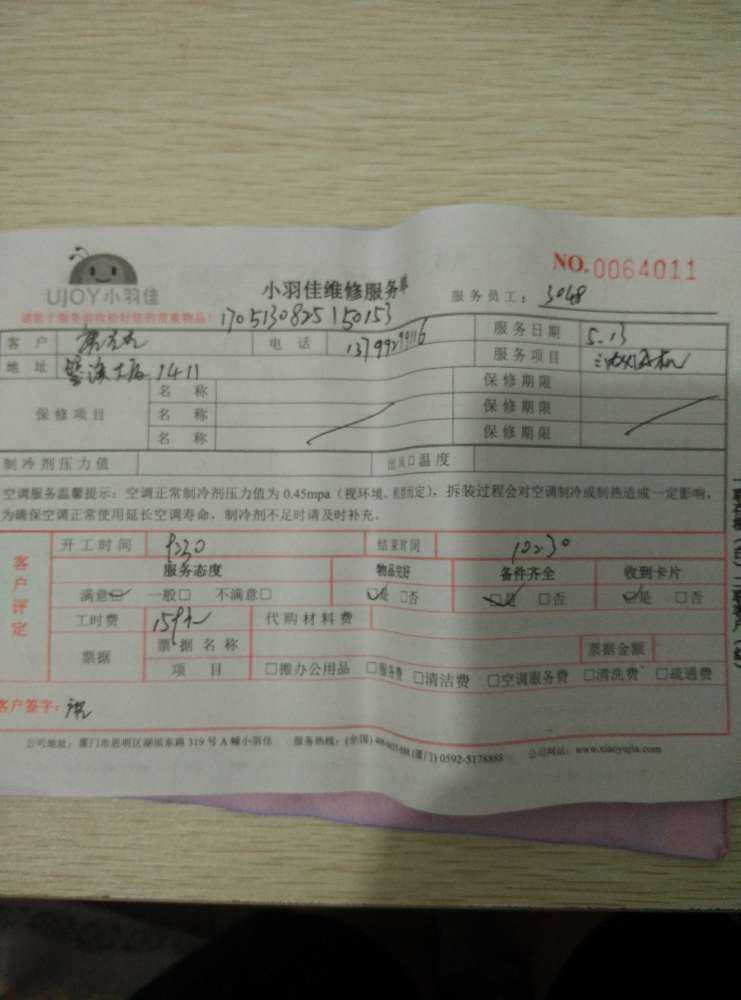 UJOY小羽佳
NO.0064011
小羽佳维修服务单
服务员工：3048
请您于服务前收拾好您的贵重物品！
170513082515 0153
客户
电话
服务日期 5.13
地址 14-11
服务项目
保修项目 名称 保修期限
名称 保修期限
名称 保修期限
制冷剂压力值 出风口温度
空调服务温馨提示：空调正常制冷剂压力值为 0.45mpa（视环境、机型而定），拆装过程会对空调制冷或制热造成一定影响，
为确保空调正常使用延长空调寿命，制冷剂不足时请及时补充。
客户评定
开工时间 9:30 结束时间 10:30
服务态度 物品完好 备件齐全 收到卡片
满意☑ 一般□ 不满意□ ☑是 □否 ☑是 □否 ☑是 □否
工时费 159元 代购材料费
票据 票据名称 票据金额
项目 □搬办公用品 □服务费 □清洁费 □空调服务费 □清洗费 □疏通费
客户签字：
公司地址：厦门市思明区湖滨东路 319 号 A 幢小羽佳 服务热线：(全国) (厦门) 0592-5178888 公司网站：www.xiaoyujia.com